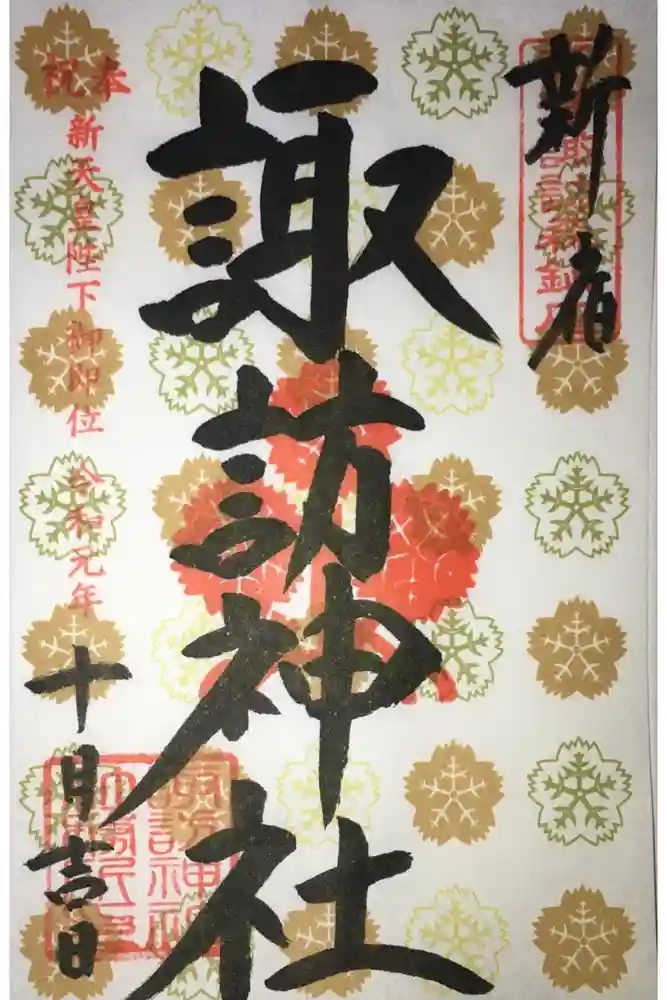 新宿
諏訪神社
奉祝
新天皇陛下御即位 令和元年
十月吉日